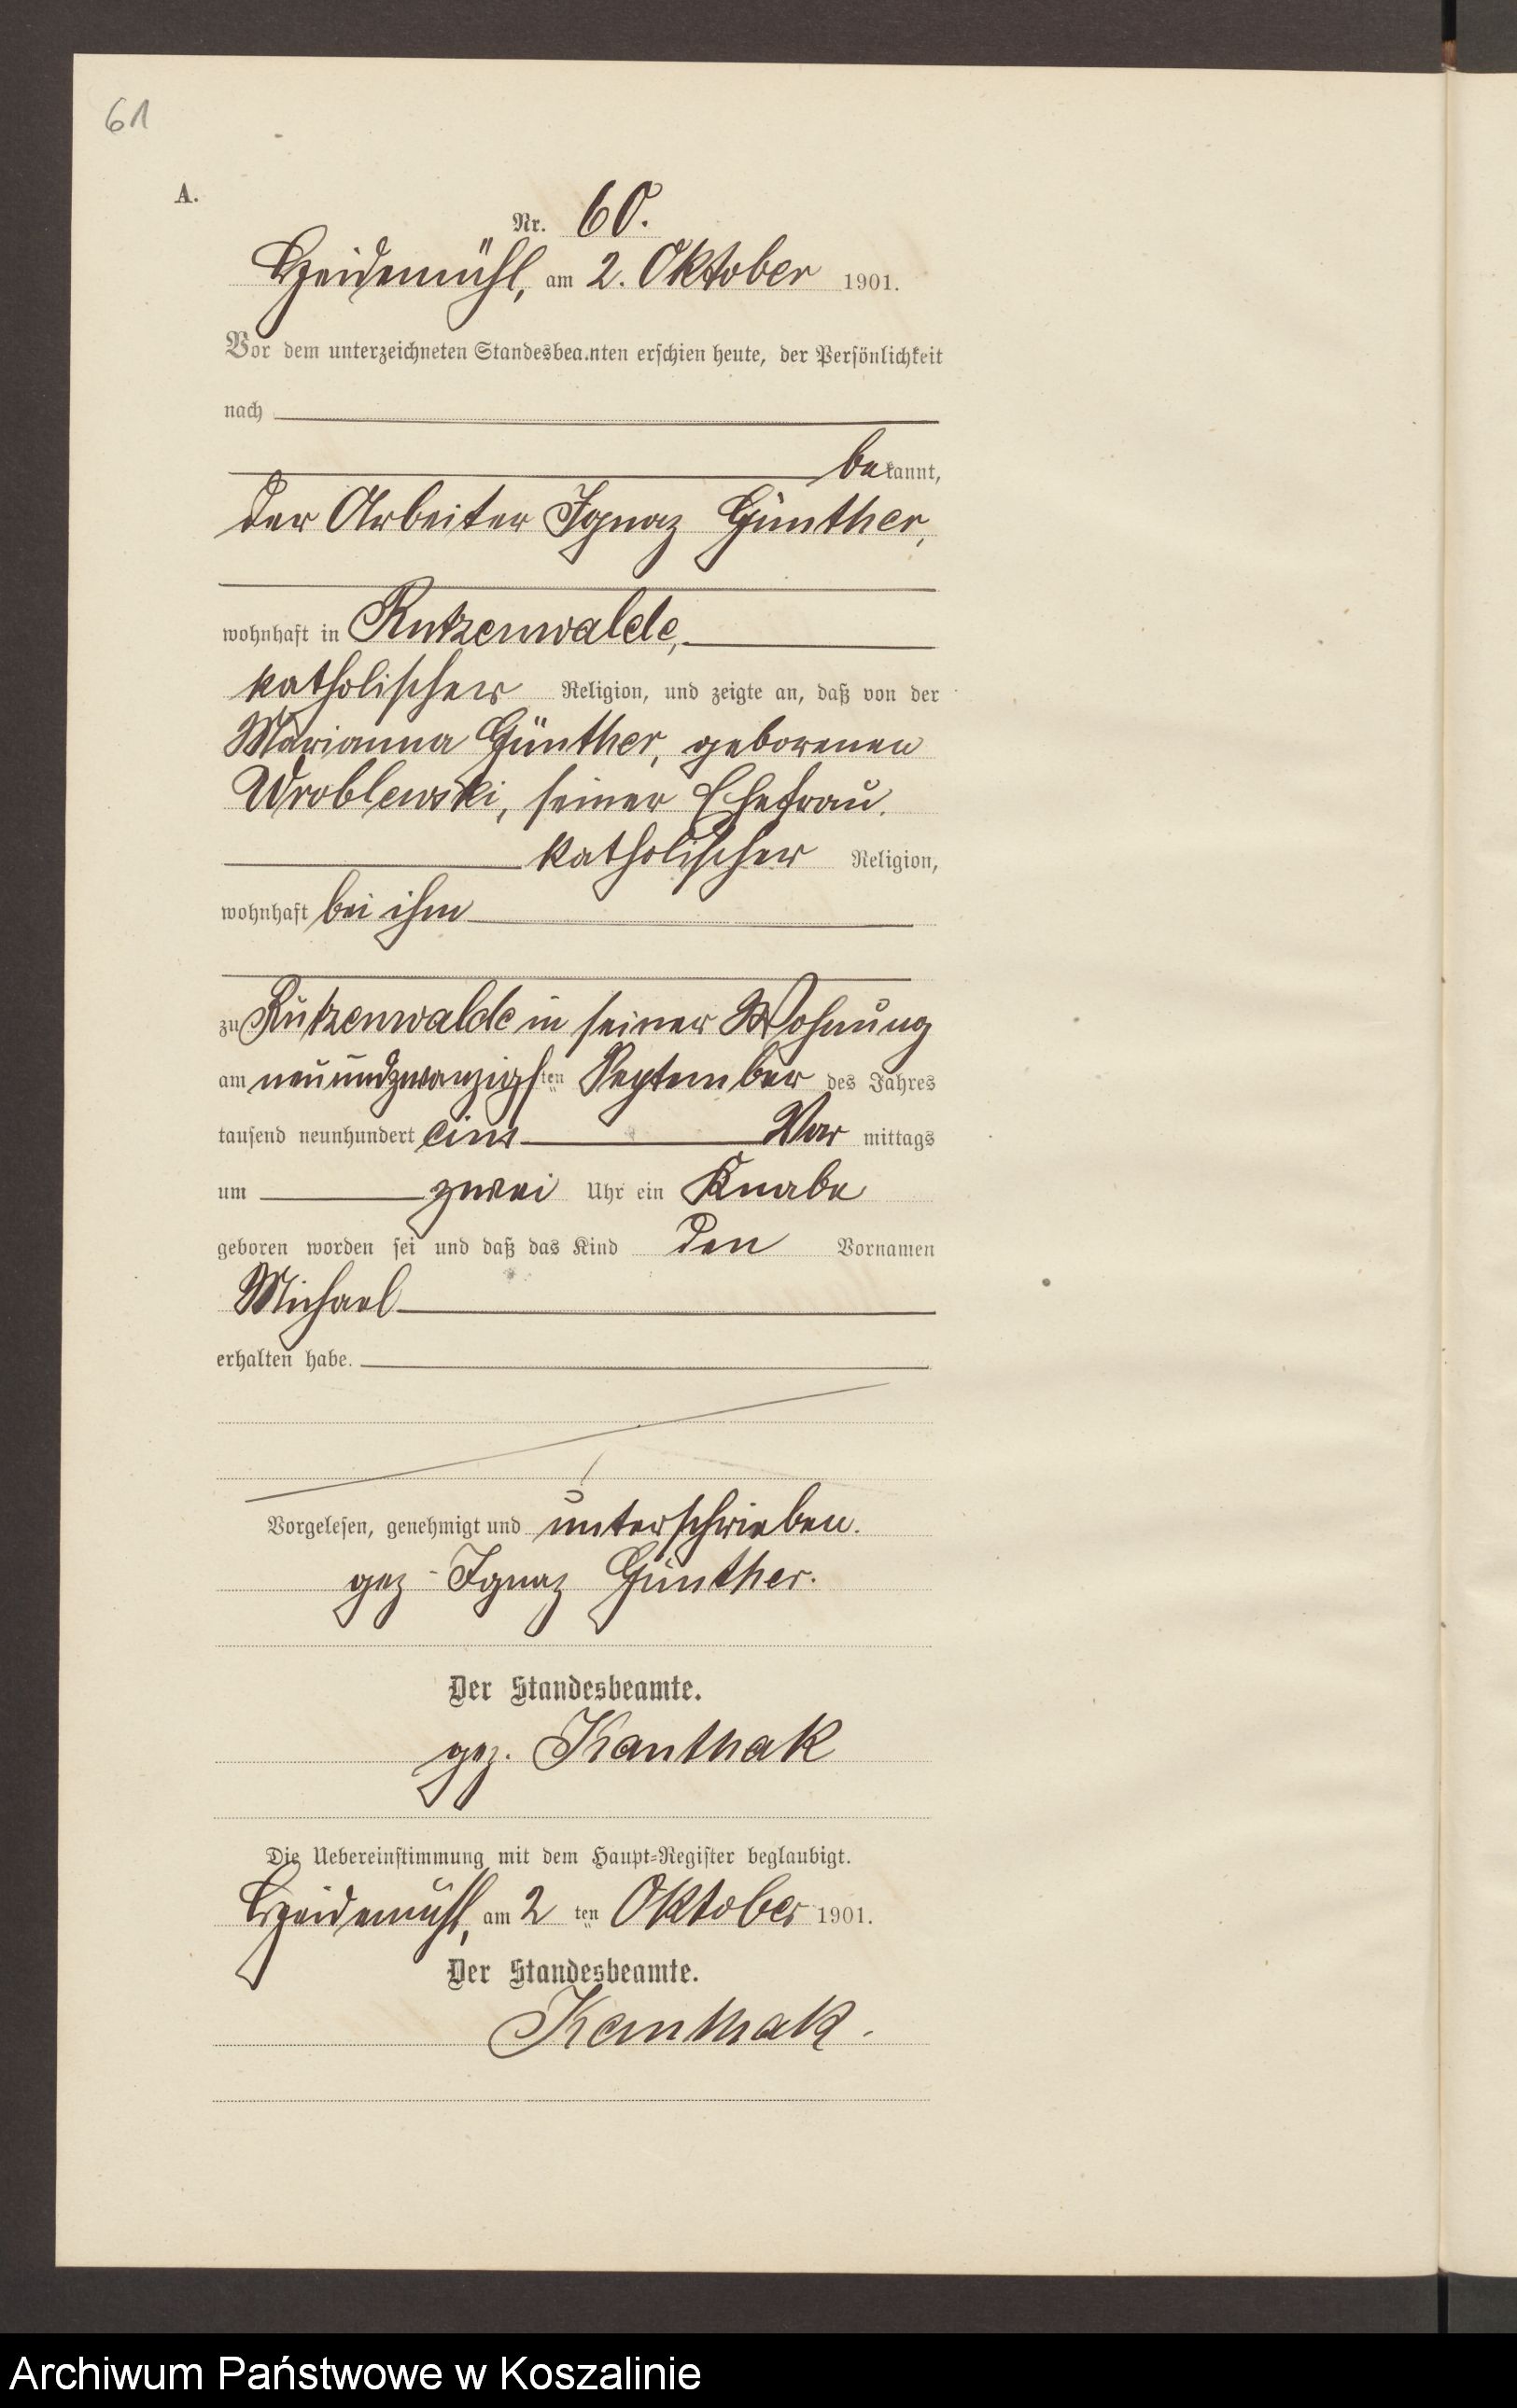 61
A.
Nr. 60.
Heidemühl, am 2. Oktober 1901.
Vor dem unterzeichneten Standesbeamten erschien heute, der Persönlichkeit
nach
bekannt,
der Arbeiter Ignaz Günther,
wohnhaft in Rutzenwalde,
katholischer Religion, und zeigte an, daß von der
Marianna Günther, geborenen
Wroblewski, seiner Ehefrau.
katholischer Religion,
wohnhaft bei ihm
zu Rutzenwalde in seiner Wohnung
am neunundzwanzigsten September des Jahres
tausend neunhundert eins Vor mittags
um zwei Uhr ein Knabe
geboren worden sei und daß das Kind den Vornamen
Michael
erhalten habe.
Vorgelesen, genehmigt und unterschrieben.
gez. Ignaz Günther.
Der Standesbeamte.
gez. Kanthak
Die Uebereinstimmung mit dem Haupt-Register beglaubigt.
Heidemühl, am 2 ten Oktober 1901.
Der Standesbeamte.
Kanthak.
Archiwum Państwowe w Koszalinie